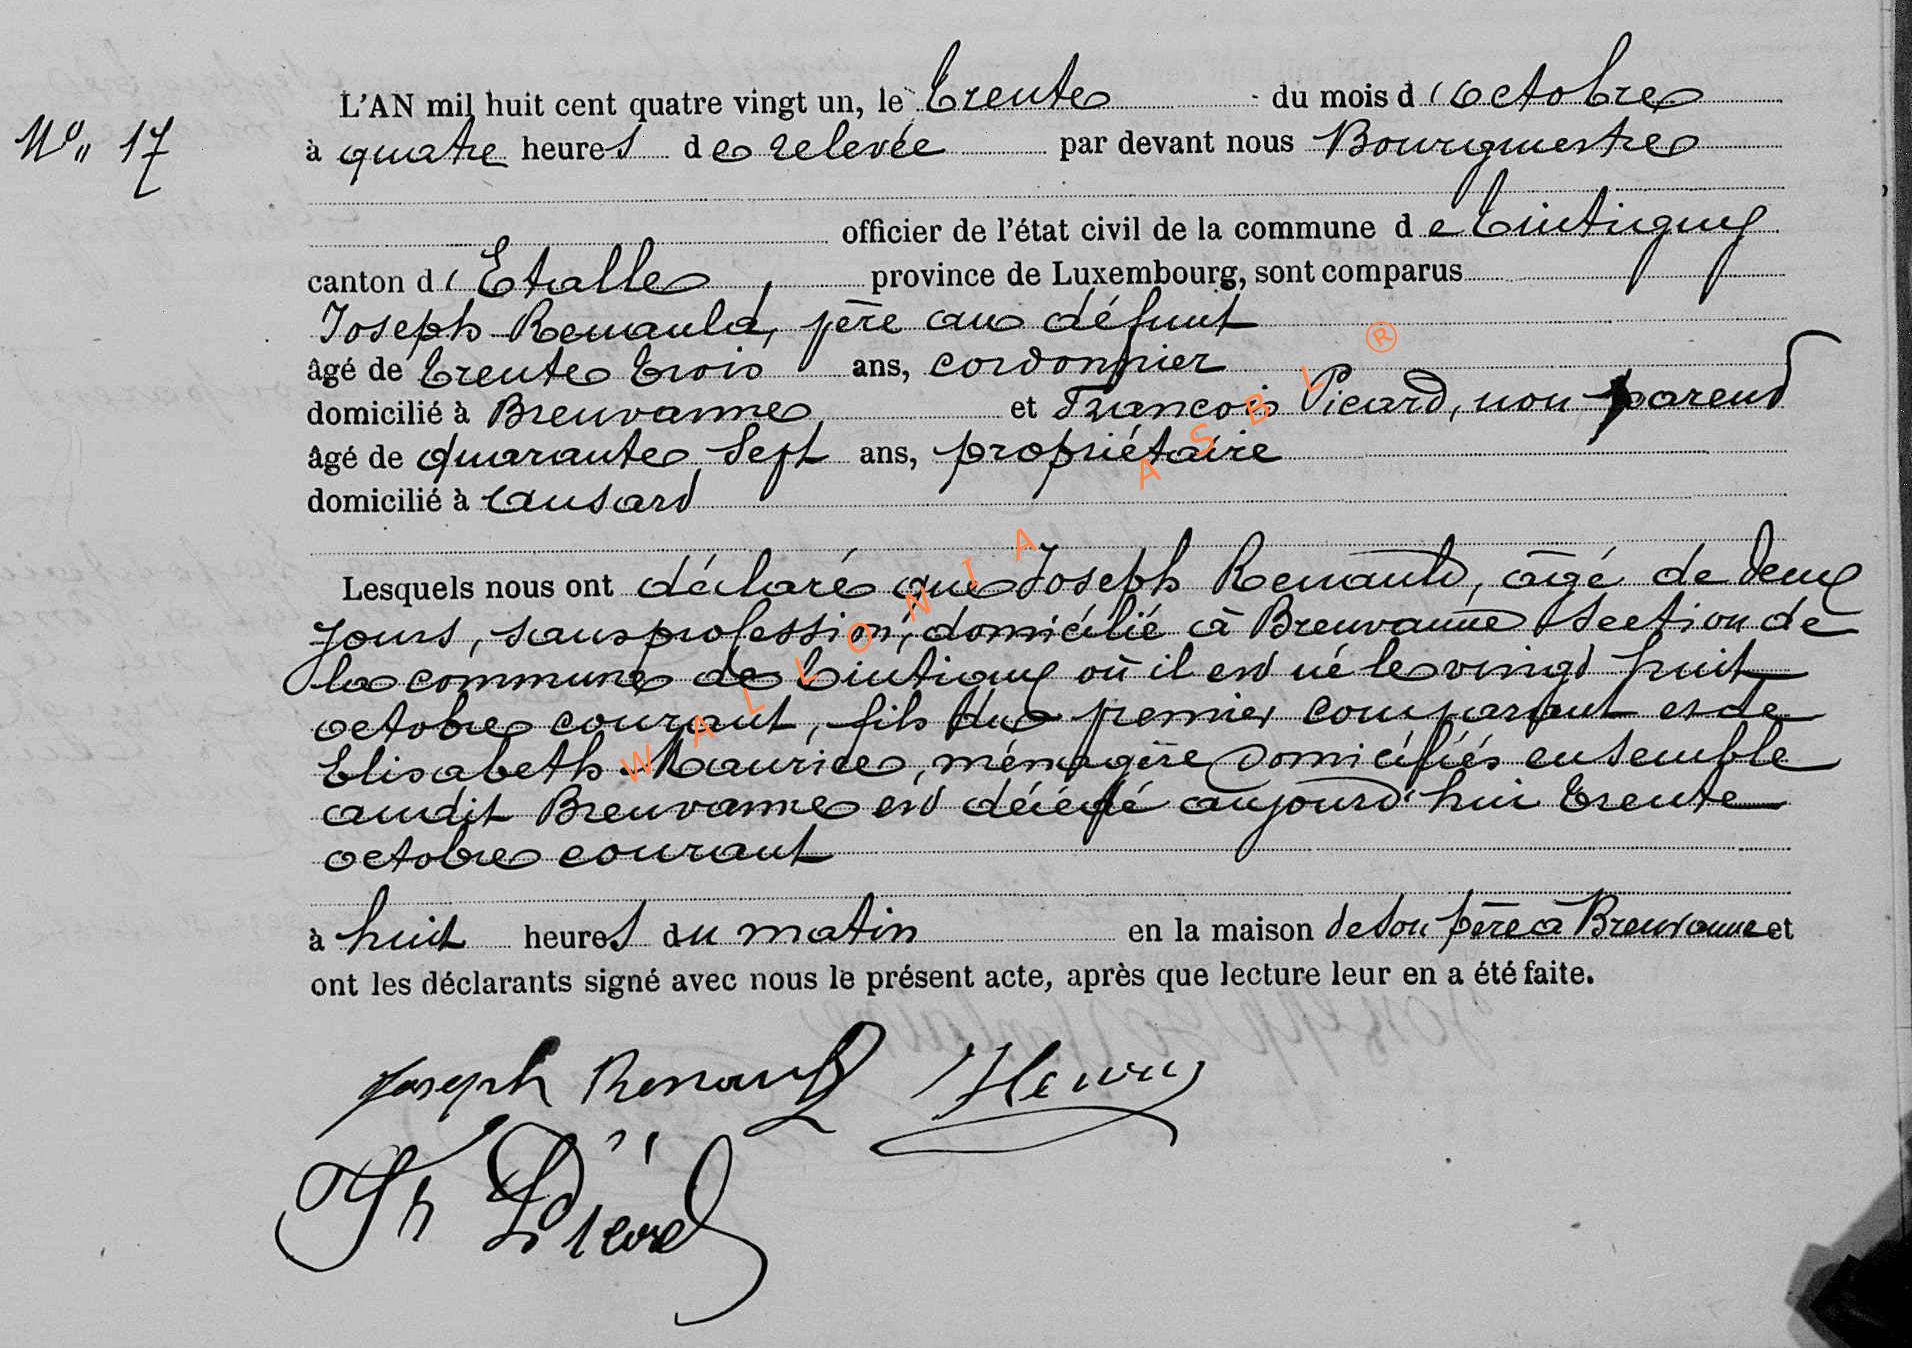 L'AN mil huit cent quatre vingt un, le trente du mois d'octobre
N° 17
à quatre heures de relevée par devant nous Bourgmestre
officier de l'état civil de la commune de Tintigny
canton d'Etalle, province de Luxembourg, sont comparus
Joseph Renauld, père au défunt
âgé de trente trois ans, cordonnier
domicilié à Breuvanne et François Picard, non parend
âgé de quarante sept ans, propriétaire
domicilié à ansard
Lesquels nous ont déclaré que Joseph Renauld, âgé de deux
jours, sans profession, domicilié à Breuvanne section de
la commune de Tintigny où il est né le vingt huit
octobre courant, fils du premier comparant et de
Elisabeth Maurice, ménagère domiciliés ensemble
audit Breuvanne est décédé aujourd'hui trente
octobre courant
à huit heures du matin en la maison de son père à Breuvanne et
ont les déclarants signé avec nous le présent acte, après que lecture leur en a été faite.
Joseph Renauld Henry
Fr Picard
WALLONIA ASBL ®